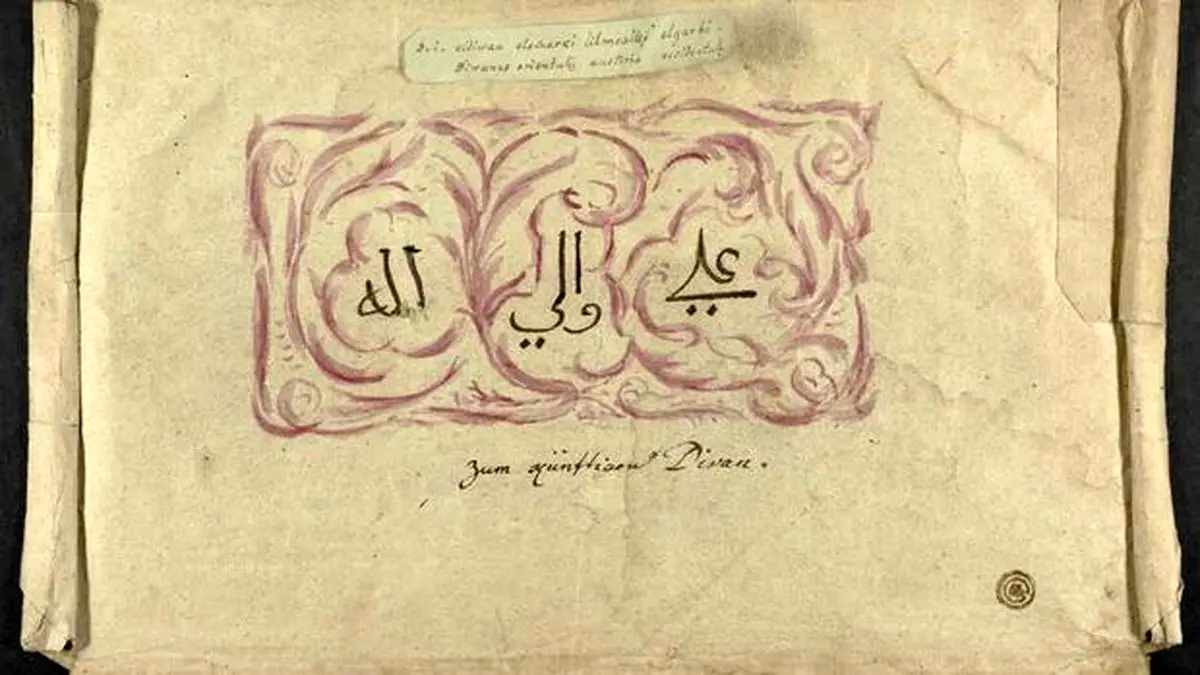 eldiwan elscharki lilmoallif elgarbi.
Diwanus orientalis auctoris occidentalis
علي والي الله
Zum künftigen Divan.